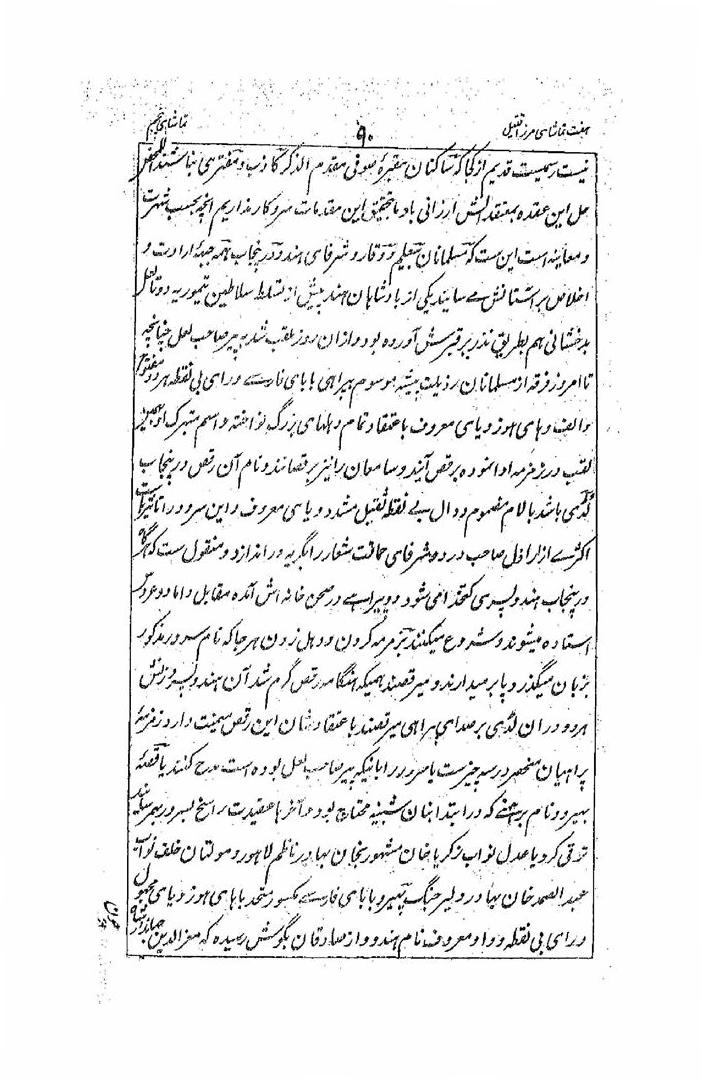 هفت تماشای مرزا قتیل
۹۰
تماشای پنجم
نیست رسمیست قدیم از کجا که ساکنان مقبرۀ صوفی مقدم الذکر کاذب و مفتری نباشند
حل این عقده بمعتقدانش ارزانی باد ما بتحقیق این مقدمات سروکار نداریم انچه بحسب شهرت
و معاینه است این ست که مسلمانان بتعلیم و وقار و شرفای هندو در پنجاب همه جبهۀ ارادت و
اخلاص بر آستانش می سایند یکی از بادشاهان هند پیش از تسلط سلاطین تیموریه دو تا لعل
بدخشانی هم بطریق نذر بر قبرش آورده بود و ازان روز ملقب شد به پیر صاحب لعل چنانچه
تا امروز فرقه از مسلمانان رذیلت پیشه موسوم بپراهی با بای فارسی و رای بی نقطه هر دو مفتوح
و الف و های هوز و یای معروف باعتقاد تمام دهلهای بزرگ نواخته و اسم متبرک او
لقب در زمزمه ادا نموده برقص آیند و سامعان را نیز برقصانند و نام آن رقص در پنجاب
لڈی باشد با لام مضموم و دال بی نقطه ثقیل مشدد و یای معروف و این سرود را تاثیریست
اکثری از اراذل صاحب درد و شرفای حماقت شعار را بگریه در اندازد و منقول ست که هرگاه
در پنجاب هندو پسری کتخدا می شود دو پیراهی در صحن خانه اش آمده مقابل داماد و عروس
استاده میشوند و شروع میکنند بزمزمه کردن و دهل زدن هر جا که نام سرور مذکور
بزبان میگذرد پا بر میدارند و میرقصند همینکه هنگامه رقص گرم شد آن هندو پسر و زنش
هر دو دران لڈی بر صدای پراهی میرقصند باعتقاد شان این رقص میمنت دارد زمزمۀ
پراهیان منحصر در سه چیز ست یا سرور را باینکه پیر صاحب لعل بوده است مدح کنند یا قصۀ
بهیرو نام برهمنی که در ابتدا بنان شبینه محتاج بود و آخرها عقیدت راسخ بسرور بهمرسانید
ترقی کرد یا عدل نواب زکریا خان مشهور بخان بهادر ناظم لاهور و مولتان خلف نواب
عبد الصمد خان بهادر دلیر جنگ بهیرو با بای فارسی مکسور متحد با های هوز و یای مجهول
و رای بی نقطه و واو معروف نام هندو و از صادقان بگوش رسیده که معز الدین جهاندارشاه